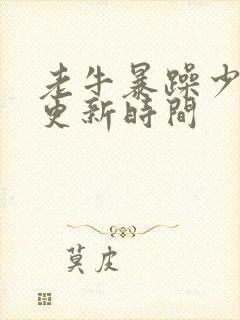 老牛暴躁少
更新时间
莫皮